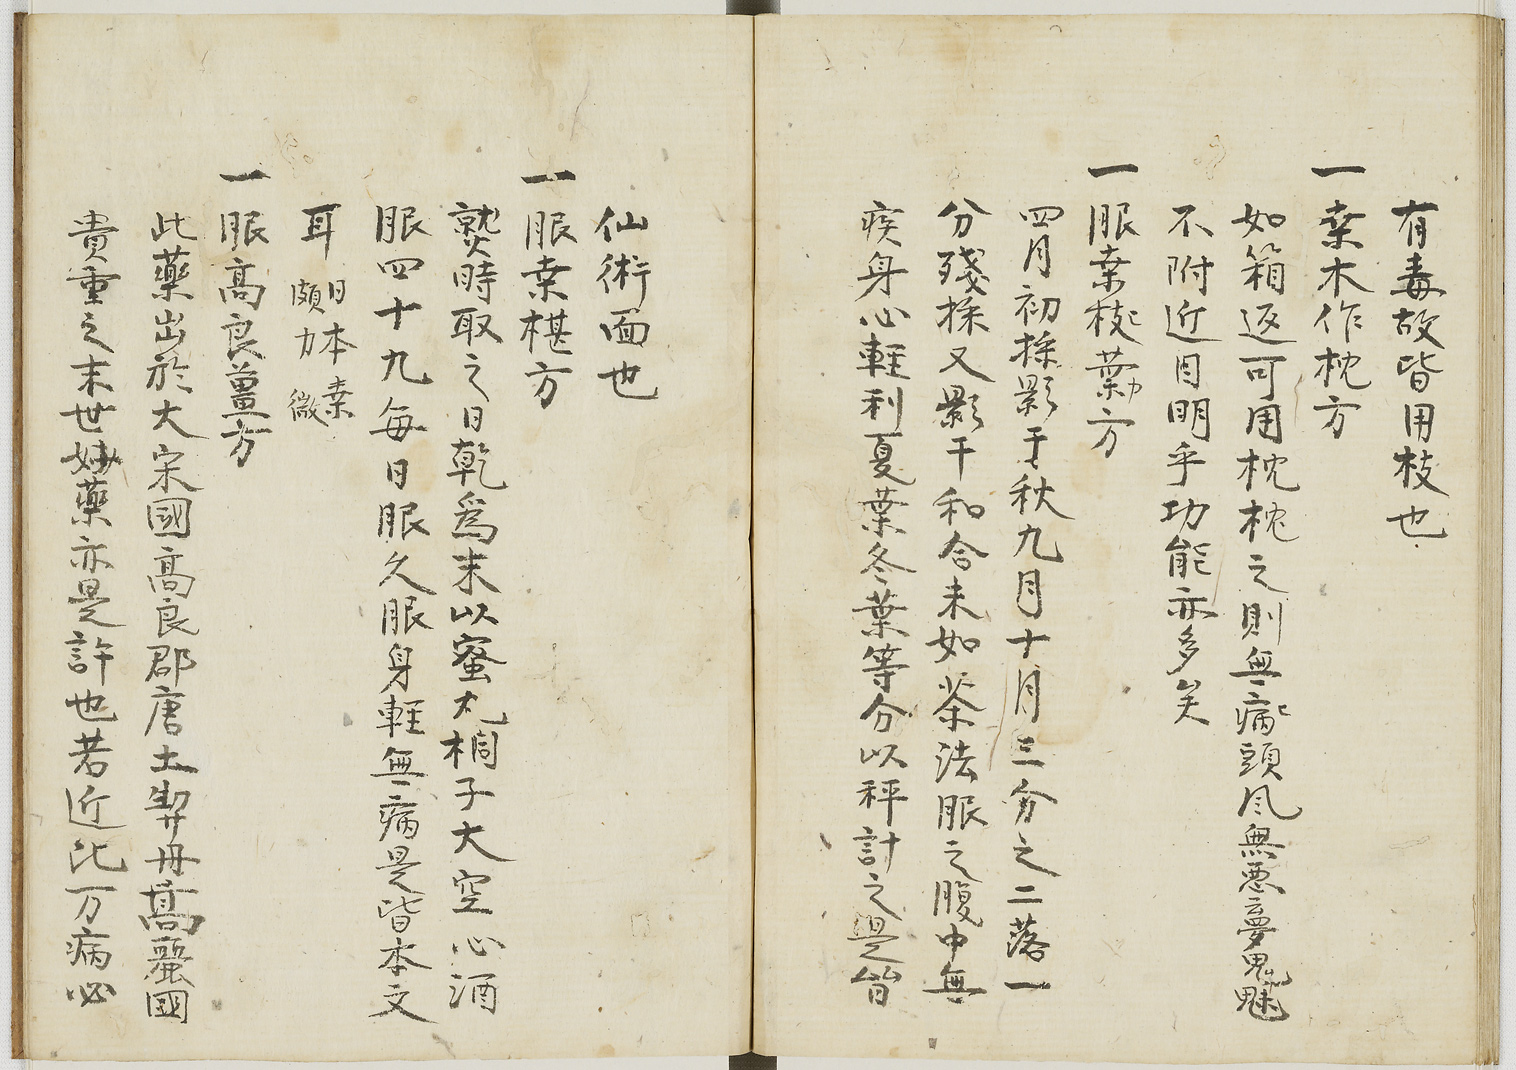 有毒故皆用枝也
一桒木作枕方
如箱返可用枕枕之則無病頭風無悪夢鬼魅
不附近目明乎功能亦多矣
一服桒枝葉方
四月初採影于秋九月十月三分之二落一
分殘採又影干和合末如茶法服之腹中無
疾身心輕利夏葉冬葉等分以秤計之是皆
仙術面也
一服桒椹方
熟時取之日乾爲末以蜜丸桐子大空心酒
服四十九每日服久服身輕無病是皆本文
耳日本桒頗力微
一服高良薑方
此藥出於大宋國高良郡唐土契丹高麗國
貴重之末世妙藥亦是許也若近比万病必